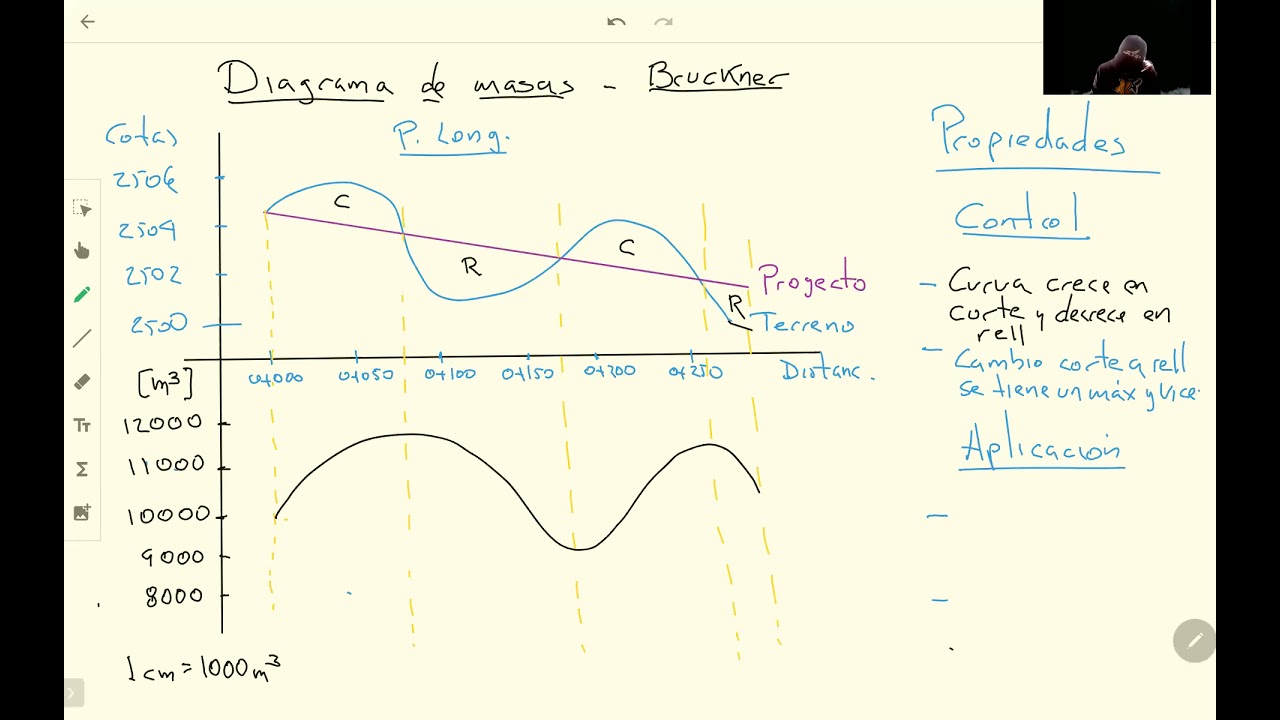 Diagrama de masas - Bruckner
Cotas
P. Long.
2506
2504
2502
2500
C
R
C
R
Proyecto
Terreno
0+000 0+050 0+100 0+150 0+200 0+250 Distanc.
[m³]
12000
11000
10000
9000
8000
1cm = 1000m³
Propiedades
Control
- Curva crece en
corte y decrece en
rell
- Cambio corte a rell
se tiene un máx y vice.
Aplicación
-
-
Tт
Σ